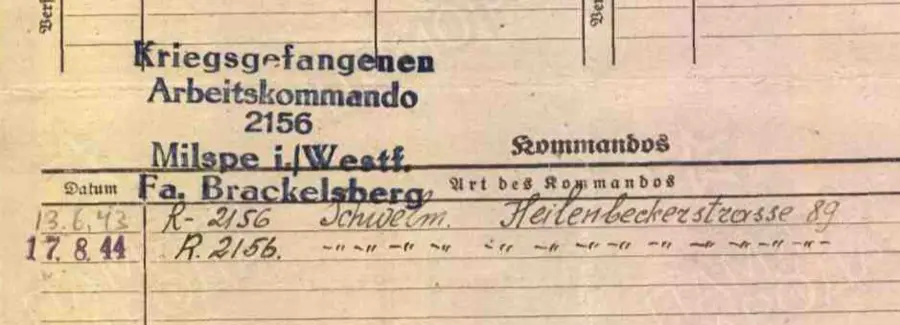 Kriegsgefangenen
Arbeitskommando
2156
Milspe i./Westf.
Fa. Brackelsberg
Kommandos
Datum Art des Kommandos
13.6.43 R- 2156 Schwelm. Heilenbeckerstrasse 89
17. 8. 44 R. 2156. -"- -"- -"- -"- -"- -"- -"- -"- -"- -"- -"- -"-